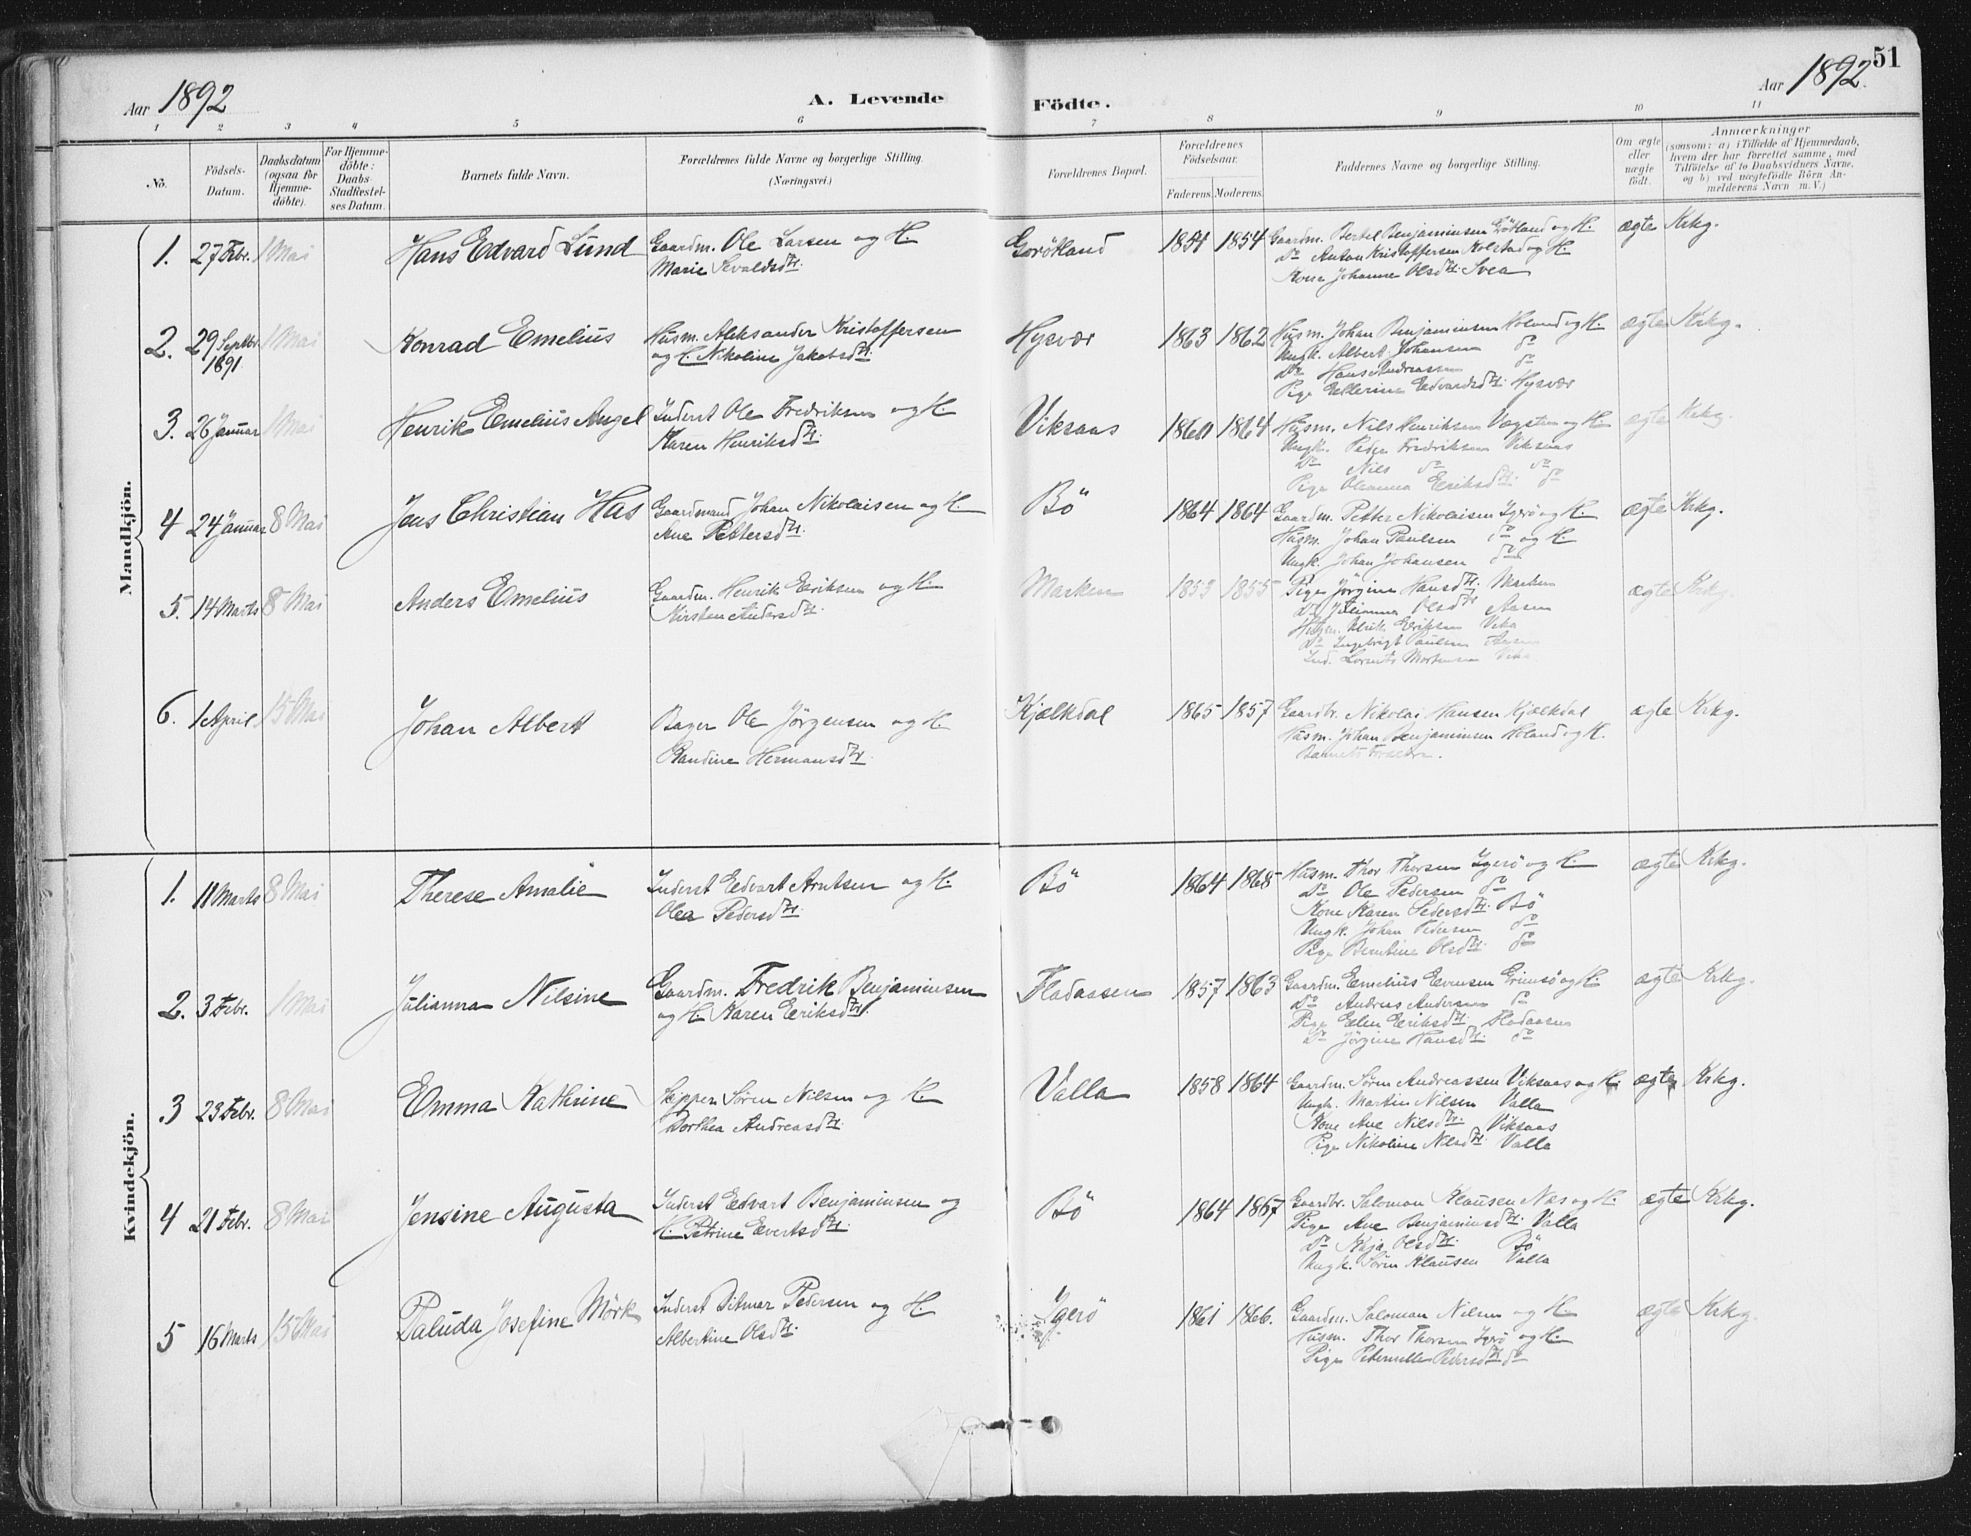 51
Aar 1892
A. Levende Födte.
Aar 1892.
1 2 3 4 5 6 7 8 9 10 11
No.
Födsels-Datum.
Daabsdatum (ogsaa for Hjemme-döbte).
For Hjemme-döbte: Daabs-Stadfæstel-ses Datum.
Barnets fulde Navn.
Forældrenes fulde Navne og borgerlige Stilling.
(Næringsvei.)
Forældrenes Bopæl.
Forældrenes Födselsaar.
Faderens Moderens
Faddernes Navne og borgerlige Stilling.
Om ægte eller uægte födt.
Anmærkninger
(saasom: a) i Tilfælde af Hjemmedaab,
hvem der har forrettet samme, med
Tilföielse af to Daabsvidners Navne,
og b) ved uægtefödte Börn An-
melderens Navn m. V.)
Mandkjön.
1. 27 Febr. 1 Mai Hans Edvard Lund Gaardm. Ole Larsen og H. Marie Sevaldsdtr. 1854 1854 ægte Krkg.
Gaardm. Bertel Benjaminsen Grötland og H.
Do Anton Kristoffersen Kolstad og H.
Kone Johanne Olsdtr. Svea
2. 29 Septbr. 1891 1 Mai Konrad Emelius Husm. Aleksander Kristoffersen og H. Nikoline Jakobsdtr. Hysvær 1863 1862 ægte Krkg.
Husm. Johan Benjaminsen Holand og H.
Ungk. Albert Johansen do
Do Hans Andreassen do
Pige Ellerine Edvardsdtr. Hysvær
3. 26 Januar 1 Mai Henrik Emelius Angel Inderst Ole Fredriksen og H. Karen Henriksdtr. Viksaas 1860 1864 ægte Krkg.
Husm. Nils Henriksen Vægsten og H.
Ungk. Peder Fredriksen Viksaas
Do Nils do do
Pige Oleanna Eriksdtr. do
4 24 Januar 8 Mai Jens Christian Has Gaardmand Johan Nikolaisen og H. Ane Pettersdtr. Bö 1864 1864 ægte Krkg.
Gaardm. Petter Nikolaisen Igerö og H.
Husm. Johan Paulsen do og H.
Ungk. Johan Johansen do
5. 14 Marts 8 Mai Anders Emelius Gaardm. Henrik Eriksen og H. Kirsten Andersdtr. Marken 1853 1855 ægte Krkg.
Pige Jörgine Hansdtr. Marken
Do Julianna Olsdtr Aasen
Ulrik Eriksen Vika
Do Ingebrigt Paulsen Aasen
Ind. Lorents Mortensen Vika
6. 1 April 15 Mai Johan Albert Bager Ole Jörgensen og H. Hermansdtr. Kjælkdal 1865 1857 ægte Krkg.
Gaardbr. Nikolai Hansen Kjælkdal
Husm. Johan Benjaminsen Holand og H.
Barnets Forældre.
Kvindekjön.
1. 11 Marts 8 Mai Therese Amalie Inderst Edvart Arntsen og H. Olea Pedersdtr. Bö 1864 1868 ægte Krkg.
Husm. Thor Thorsen Igerö og H.
Do Ole Pedersen do
Kone Karen Pedersdtr. Bö
Ungk. Johan Pedersen do
Pige Berntine Olsdtr. do
2. 3 Febr. 1 Mai Julianna Nilsine Gaardm. Fredrik Benjaminsen og H. Karen Eriksdtr. Fladaasen 1857 1863 ægte Krkg.
Gaardm. Emelius Evensen Grimsö og H.
Do Andreas Andersen do
Pige Elen Eriksdtr. Fladaasen
Do Jörgine Hansdtr. do
3 23 Febr. 8 Mai Emma Kathrine Skipper Sören Nilsen og H. Dorthea Andreasdtr. Valla 1858 1864 ægte Krkg.
Gaardm. Sören Andreassen Viksaas og H.
Ungk. Martin Nilsen Valla
Kone Ane Nilsdtr. Viksaas
Pige Nikoline Nilsdtr. Valla
4 21 Febr. 8 Mai Jensine Augusta Inderst Edvart Benjaminsen og H. Petrine Evertsdtr. Bö 1864 1867 ægte Krkg.
Gaardbr. Saloman Klausen Næs og H.
Pige Ane Benjaminsdtr. Valla
Do Maja Olsdtr. Bö
Ungk. Sören Klausen Valla
5 16 Marts 15 Mai Paluda Josefine Mörk Inderst Ditmar Pedersen og H. Albertine Olsdtr. Igerö 1861 1866. ægte Krkg.
Gaardm. Saloman Nilsen og H.
Husm. Thor Thorsen Igerö og H.
Pige Peternelle Pedersdtr do